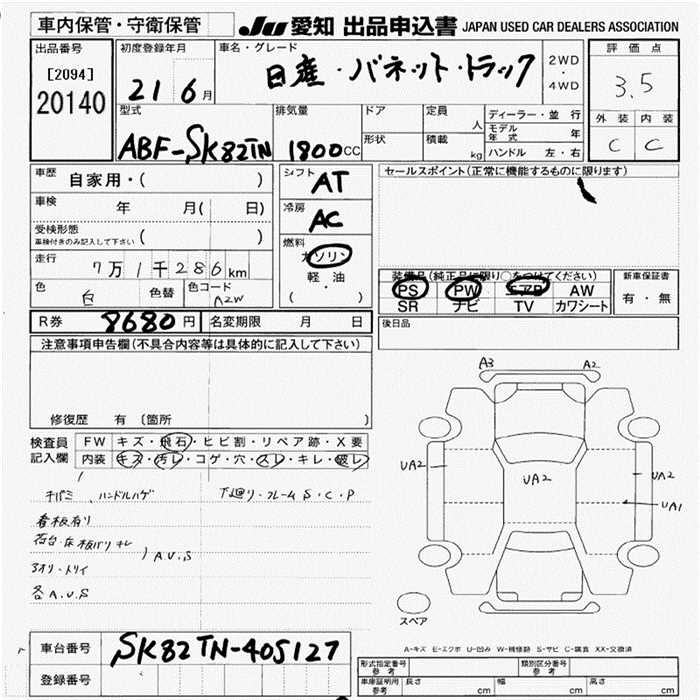 車内保管・守衛保管
JU 愛知 出品申込書 JAPAN USED CAR DEALERS ASSOCIATION
出品番号
[2094]
20140
初度登録年月
21 6月
車名・グレード
日産・バネット・トラック
2WD
・
4WD
評価点
3.5
外装 内装
C C
型式
ABF-SK82TN
排気量
1800cc
ドア
形状
定員
人
積載
kg
ディーラー・並行
モデル年式 年
ハンドル 左・右
車歴
自家用・( )
車検
年 月( 日)
受検形態
車検付きのみ記入して下さい ( )
走行
7万1千286km
色
白
色替
色コード
A2W
シフト
AT
冷房
AC
燃料
ガソリン
軽・油
( ・ )
セールスポイント(正常に機能するものに限ります)
装備品(純正品に限り○をつけてください)
PS PW エアB AW
SR ナビ TV カワシート
新車保証書
有・無
後日品
R券 8680円 名変期限 月 日
注意事項申告欄(不具合内容等は具体的に記入して下さい)
修復歴 有 〔箇所 〕
検査員
記入欄
FW キズ・飛石・ヒビ割・リペア跡・X要
内装 キズ・汚レ・コゲ・穴・スレ・キレ・破レ
ハンドルハゲ
下廻り・フレームS・C・P
看板有り
荷台・床板バリキレ
A.U.S
3オリ・トリイ
各A.U.S
A3 A2
UA2
UA2
UA2
UA1
スペア
A-キズ E-エクボ U-凹み W-補修跡 S-サビ C-腐食 XX-交換済
車台番号 SK82TN-405127
登録番号
形式指定番号
参考
類別区分番号
参考
車庫証明用
参考
長さ cm 幅 cm 高さ cm